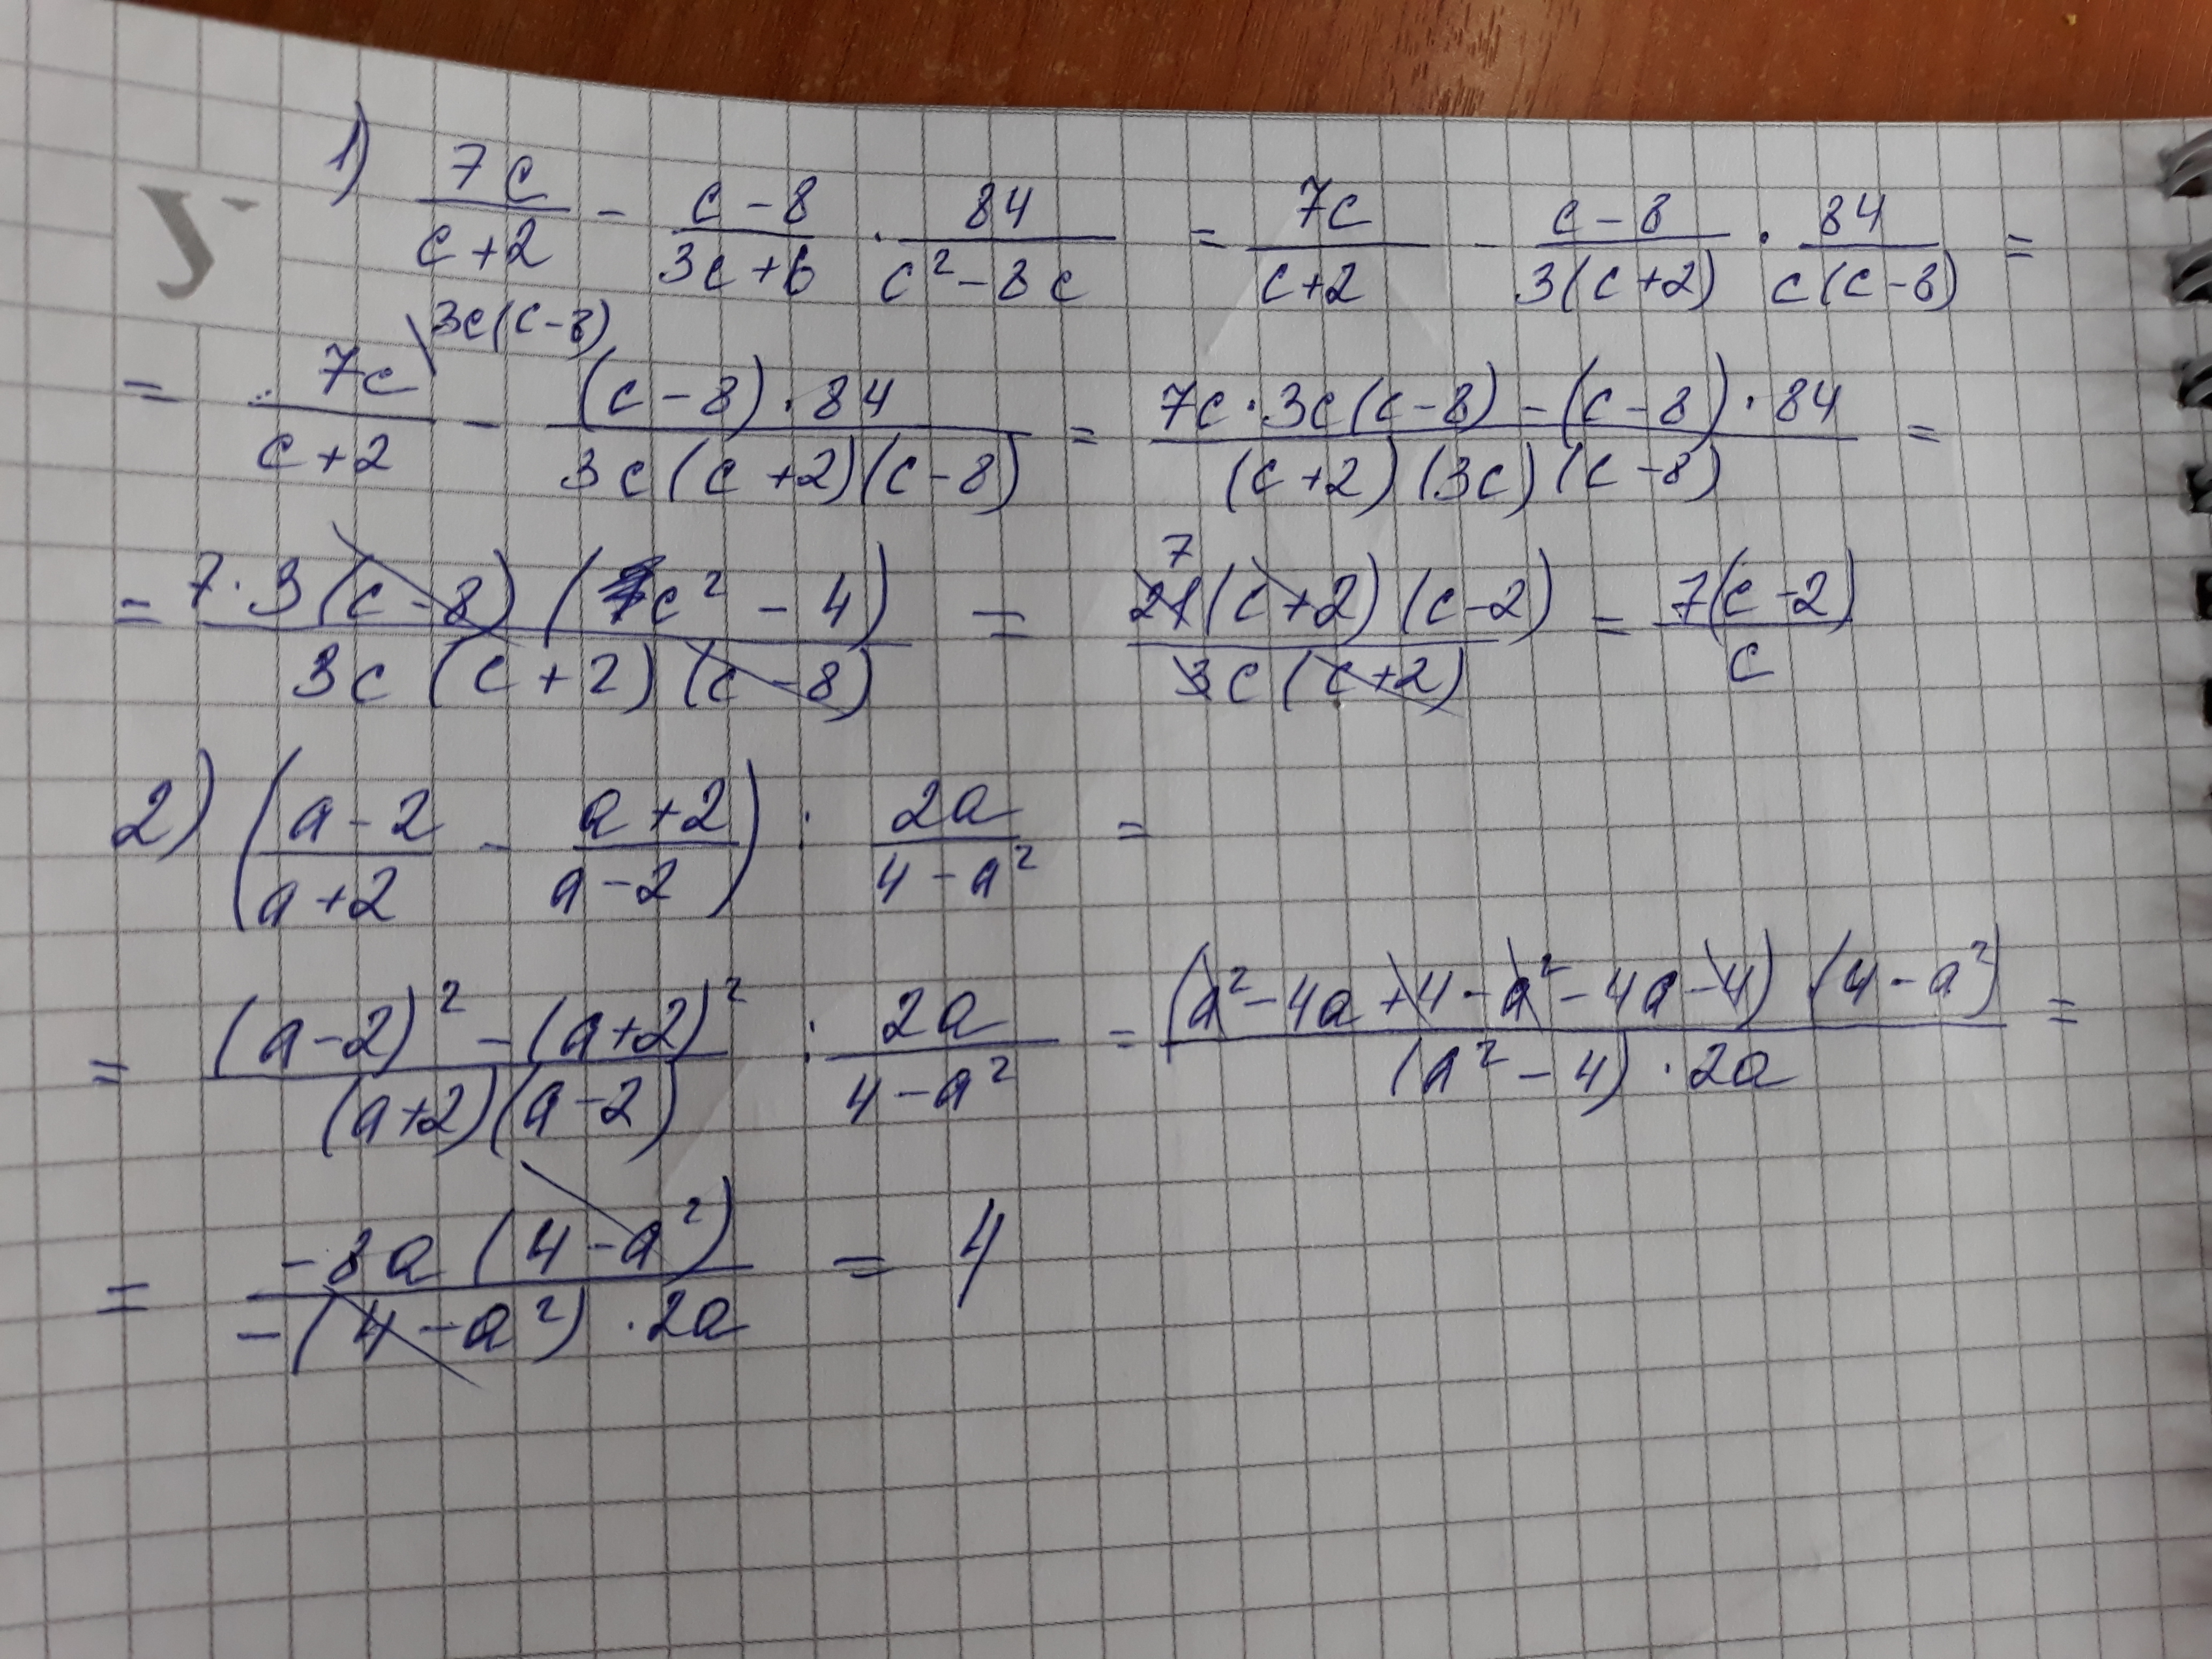 У
1) 7c/(c+2) - (c-8)/(3c+6) · 84/(c²-8c) = 7c/(c+2) - (c-8)/(3(c+2)) · 84/(c(c-8)) =
= 7c\3c(c-8)/(c+2) - ((c-8)·84)/(3c(c+2)(c-8)) = (7c·3c(c-8)-(c-8)·84)/((c+2)(3c)(c-8)) =
= (7·3(c-8)(c²-4))/(3c(c+2)(c-8)) = (21 7(c+2)(c-2))/(3c(c+2)) = (7(c-2))/c
2) ((a-2)/(a+2) - (a+2)/(a-2)) : 2a/(4-a²) =
= ((a-2)²-(a+2)²)/((a+2)(a-2)) : 2a/(4-a²) = ((a²-4a+4-a²-4a-4)(4-a²))/((a²-4)·2a) =
= (-8a(4-a²))/(-(4-a²)·2a) = 4